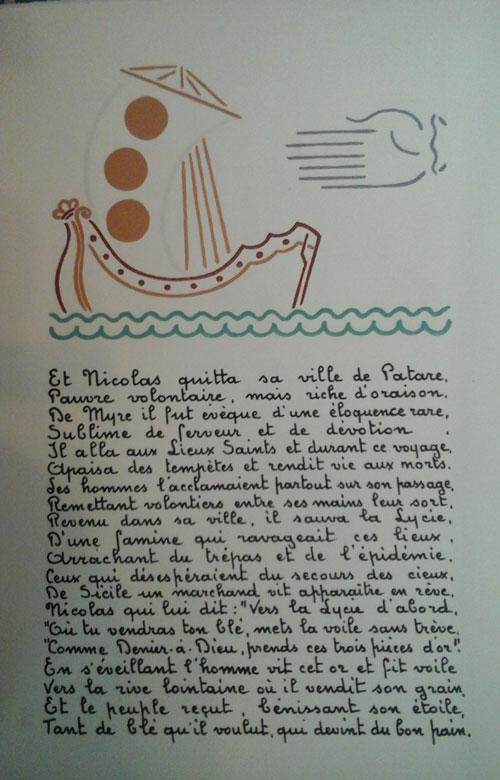 Et Nicolas quitta sa ville de Patare,
Pauvre volontaire, mais riche d'oraison.
De Myre il fut évèque d'une éloquence rare,
Sublime de ferveur et de dévotion .
Il alla aux Lieux Saints et durant ce voyage,
Apaisa des tempêtes et rendit vie aux morts.
Les hommes l'acclamaient partout sur son passage,
Remettant volontiers entre ses mains leur sort.
Revenu dans sa ville, il sauva la Lycie,
D'une famine qui ravageait ces lieux,
Arrachant du trépas et de l'épidémie,
Ceux qui désespéraient du secours des cieux,
De Sicile un marchand vit apparaître en rêve,
Nicolas qui lui dit: "Vers la Lycie d'abord,
"Où tu vendras ton blé, mets la voile sans trêve,
"Comme Denier-à-Dieu, prends ces trois pièces d'or".
En s'éveillant l'homme vit cet or et fit voile
Vers la rive lointaine où il vendit son grain,
Et le peuple reçut, bénissant son étoile,
Tant de blé qu'il voulut, qui devint du bon pain.